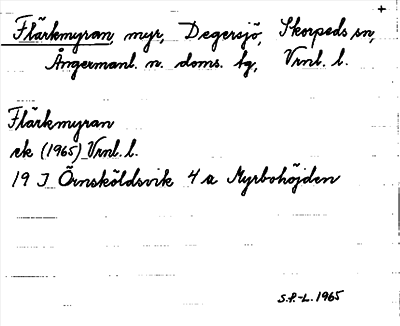 +
Flärkmyran myr, Degersjö, Skorpeds sn,
Ångermanl. n. doms. tg, Vrnl. l.
Flärkmyran
ek (1965) Vrnl. l.
19 J Örnsköldsvik 4 a Myrbohöjden
S.P.-L. 1965